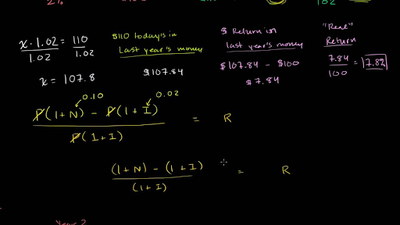 2%
102
x · 1.02 = 110
1.02 1.02
x = 107.8
$110 today's in
last year's money
$107.84
$ Return in
last year's money
$107.84 - $100
$7.84
"Real"
Return
7.84
100
= 7.8%
0.10 0.02
P(1+N) - P(1+I) = R
P(1+I)
(1+N) - (1+I) = R
(1+I)
Year 2